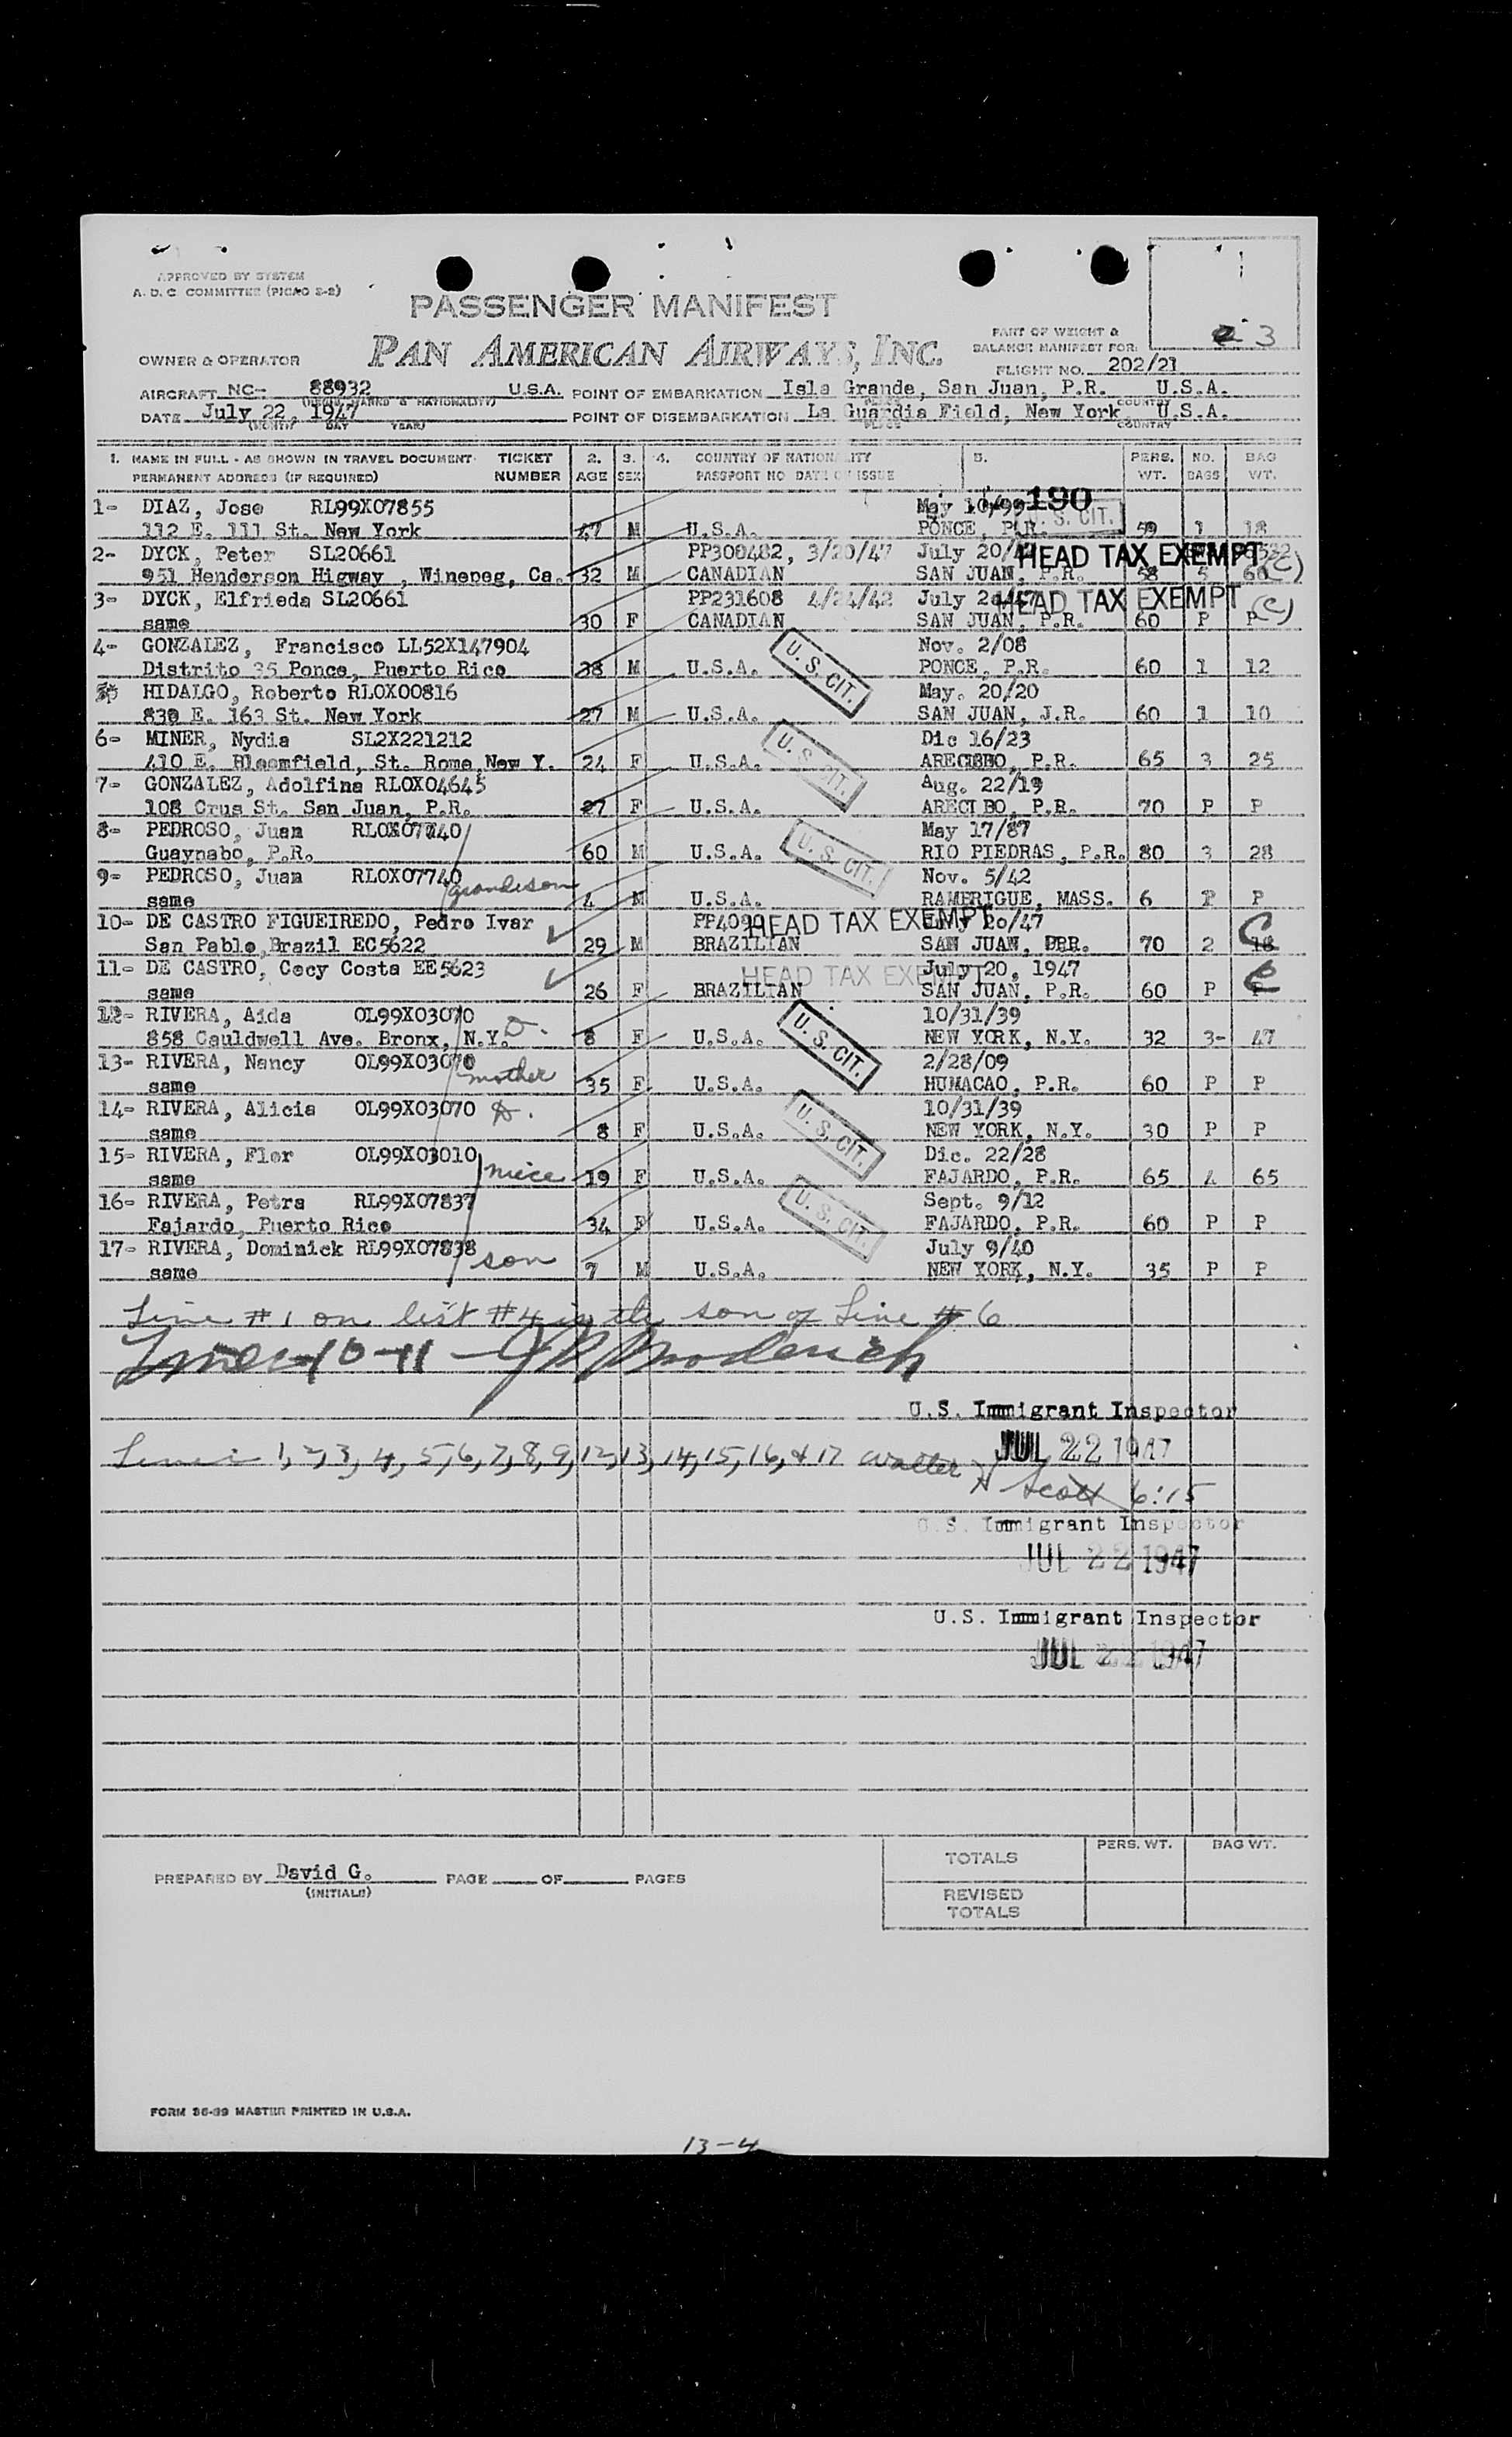 APPROVED BY SYSTEM
A. D. C. COMMITTEE (PICAO 2-2)
PASSENGER MANIFEST
PAN AMERICAN AIRWAYS, INC.
3
PART OF WEIGHT &
BALANCE MANIFEST FOR:
OWNER & OPERATOR
FLIGHT NO. 202/21
AIRCRAFT NC- 88932 U.S.A. POINT OF EMBARKATION Isla Grande, San Juan, P.R. U.S.A.
DATE July 22, 1947 POINT OF DISEMBARKATION La Guardia Field, New York U.S.A.
(MONTH DAY YEAR) PLACE COUNTRY
1. NAME IN FULL - AS SHOWN IN TRAVEL DOCUMENT TICKET 2. 3. 4. COUNTRY OF NATIONALITY 5. PERS. NO. BAG
PERMANENT ADDRESS (IF REQUIRED) NUMBER AGE SEX PASSPORT NO DATE OF ISSUE WT. BAGS WT.
1- DIAZ, Jose RL99X07855 May 10/99 190
112 E. 111 St. New York 47 M U.S.A. PONCE, P.R. U.S. CIT. 59 1 18
2- DYCK, Peter SL20661 PP300482, 3/20/47 July 20/47 HEAD TAX EXEMPT
951 Henderson Higway , Winepeg, Ca. 32 M CANADIAN SAN JUAN, P.R. 58 5 60 (C)
3- DYCK, Elfrieda SL20661 PP231608 4/24/42 July 20/47 HEAD TAX EXEMPT (C)
same 30 F CANADIAN SAN JUAN, P.R. 60 P P
4- GONZALEZ, Francisco LL52X147904 Nov. 2/08
Distrito 35 Ponce, Puerto Rico 38 M U.S.A. U.S. CIT. PONCE, P.R. 60 1 12
HIDALGO, Roberto RLOX00816 May. 20/20
830 E. 163 St. New York 27 M U.S.A. SAN JUAN, J.R. 60 1 10
6- MINER, Nydia SL2X221212 Dic 16/23
410 E. Bloomfield, St. Rome New Y. 24 F U.S.A. U.S. CIT. ARECIBBO, P.R. 65 3 25
7- GONZALEZ, Adolfina RLOX04645 Aug. 22/19
108 Crus St. San Juan, P.R. 27 F U.S.A. ARECIBO, P.R. 70 P P
8- PEDROSO, Juan RLOX07740 May 17/87
Guaynabo, P.R. 60 M U.S.A. U.S. CIT. RIO PIEDRAS, P.R. 80 3 28
9- PEDROSO, Juan RLOX07740 grandson Nov. 5/42
same 4 M U.S.A. RAMBRIGUE, MASS. 6 P P
10- DE CASTRO FIGUEIREDO, Pedro Ivar HEAD TAX EXEMPT
San Pablo,Brazil EC5622 29 M BRAZILIAN SAN JUAN, 70 2 18 C
11- DE CASTRO, Cecy Costa EE5623 HEAD TAX EXEMPT July 20, 1947
same 26 F BRAZILIAN SAN JUAN, P.R. 60 P P C
12- RIVERA, Aida OL99X03070 D. 10/31/39
858 Cauldwell Ave. Bronx, N.Y. 8 F U.S.A. U.S. CIT. NEW YORK, N.Y. 32 3- 47
13- RIVERA, Nancy OL99X03070 mother 2/28/09
same 35 F U.S.A. HUMACAO, P.R. 60 P P
14- RIVERA, Alicia OL99X03070 D. 10/31/39
same 8 F U.S.A. U.S. CIT. NEW YORK, N.Y. 30 P P
15- RIVERA, Flor OL99X03010 niece Dic. 22/28
same 19 F U.S.A. FAJARDO, P.R. 65 4 65
16- RIVERA, Petra RL99X07837 Sept. 9/12
Fajardo, Puerto Rico 34 F U.S.A. U.S. CIT. FAJARDO, P.R. 60 P P
17- RIVERA, Dominick RL99X07838 son July 9/40
same 7 M U.S.A. NEW YORK, N.Y. 35 P P
Line # 1 on list #4 is the son of Line # 6
Lines 10-11 - Broderick
U.S. Immigrant Inspector
JUL 22 1947
Lines 1, 2, 3, 4, 5, 6, 7, 8, 9, 12, 13, 14, 15, 16, & 17 Walter H Scott 6:15
U.S. Immigrant Inspector
JUL 22 1947
U.S. Immigrant Inspector
JUL 22 1947
PERS. WT. BAG WT.
TOTALS
PREPARED BY David G. PAGE OF PAGES
(INITIALS)
REVISED
TOTALS
FORM 36-99 MASTER PRINTED IN U.S.A.
13-4